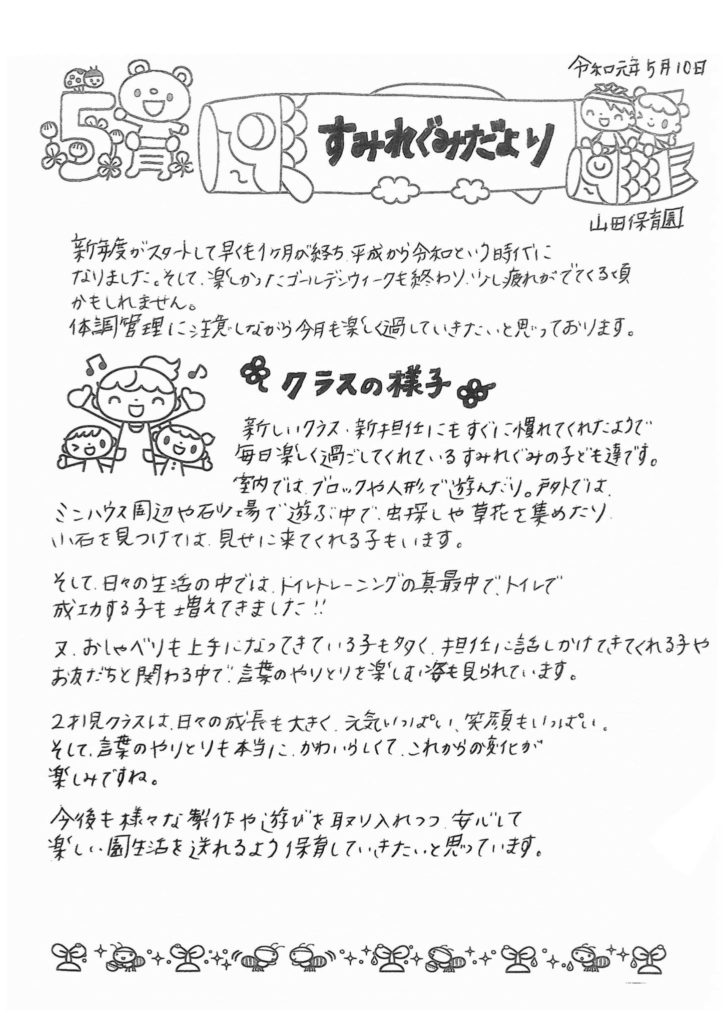 令和元年5月10日
5月
すみれぐみだより
山田保育園
新年度がスタートして早くも1ヶ月が経ち、平成から令和という時代に
なりました。そして、楽しかったゴールデンウィークも終わり、少し疲れがでてくる頃
かもしれません。
体調管理に注意しながら今月も楽しく過していきたいと思っております。
クラスの様子
新しいクラス・新担任にもすぐに慣れてくれたようで
毎日楽しく過ごしてくれているすみれぐみの子ども達です。
室内では、ブロックや人形で遊んだり。戸外では、
ミンハウス周辺や石り場で遊ぶ中で、虫探しや草花を集めたり、
小石を見つけては、見せに来てくれる子もいます。
そして、日々の生活の中では、トイレトレーニングの真最中で、トイレで
成功する子も増えてきました!!
又、おしゃべりも上手になってきている子も多く、担任に話しかけてきてくれる子や
お友だちと関わる中で、言葉のやりとりを楽しむ姿も見られています。
2才児クラスは、日々の成長も大きく、元気いっぱい、笑顔もいっぱい。
そして、言葉のやりとりも本当に、かわいらしくて、これからの変化が
楽しみですね。
今後も様々な製作や遊びを取り入れつつ、安心して
楽しい園生活を送れるよう保育していきたいと思っています。